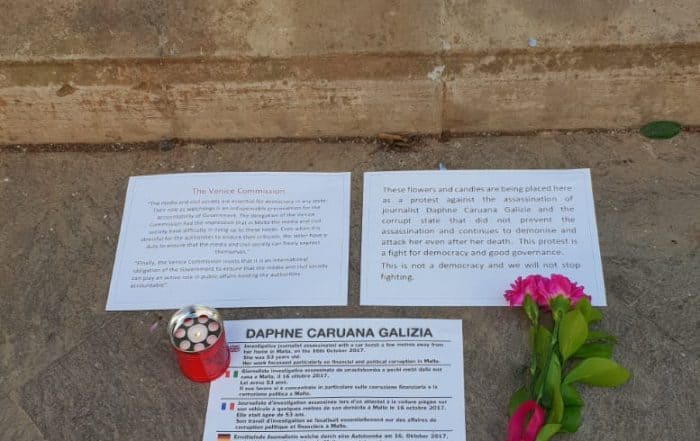 The Venice Commission
"The media and civil society are essential for democracy in any state.
Their role as watchdogs is an indispensable precondition for the
accountability of Government. The delegation of the Venice
Commission had the impression that in Malta the media and civil
society have difficulty in living up to these needs. Even when it is
stressful for the authorities to endure their criticism, the latter have a
duty to ensure that the media and civil society can freely express
themselves."
"Finally, the Venice Commission insists that it is an international
obligation of the Government to ensure that the media and civil society
can play an active role in public affairs holding the authorities
accountable".
These flowers and candles are being placed here
as a protest against the assassination of
journalist Daphne Caruana Galizia and the
corrupt state that did not prevent the
assassination and continues to demonise and
attack her even after her death. This protest is
a fight for democracy and good governance.
This is not a democracy and we will not stop
fighting.
DAPHNE CARUANA GALIZIA
Investigative journalist assassinated with a car bomb a few metres away from
her home in Malta, on the 16th October 2017.
She was 53 years old.
Her work focussed particularly on financial and political corruption in Malta.
Giornalista investigativa assassinata da un'autobomba a pochi metri dalla sua
casa a Malta, il 16 ottobre 2017.
Lei aveva 53 anni.
Il suo lavoro si è concentrato in particolare sulla corruzione finanziaria e la
corruzione politica a Malta.
Journaliste d'investigation assassinée lors d'un attentat à la voiture piégée sur
son véhicule à quelques mètres de son domicile à Malte le 16 octobre 2017.
Elle était âgée de 53 ans.
Son travail d'investigation se focalisait essentiellement sur des affaires de
corruption politique et financière à Malte.
Ermittelnde Journalistin welche durch eine Autobombe am 16. Oktober 2017,